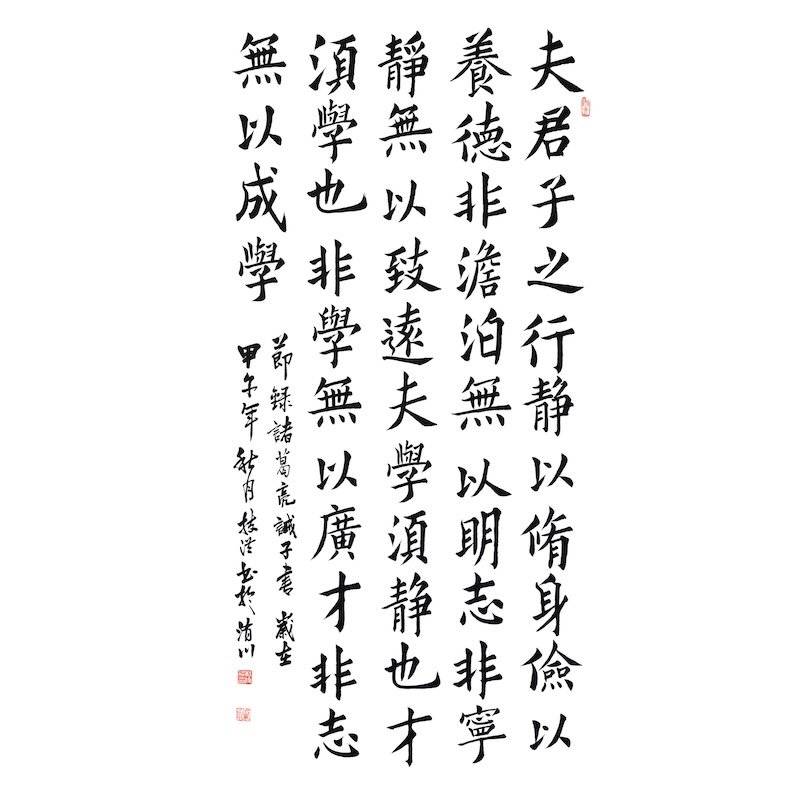 夫君子之行静以脩身儉以
養德非澹泊無以明志非寧
靜無以致遠夫學須静也才
須學也非學無以廣才非志
無以成學
節録諸葛亮誡子書 歲在
甲午年秋月 书於清川